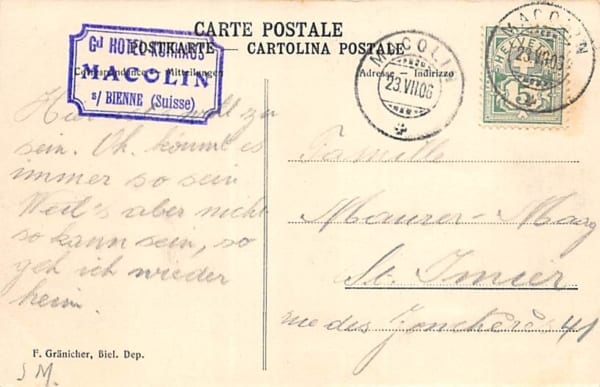 CARTE POSTALE
POSTKARTE — CARTOLINA POSTALE
Correspondance — Mitteilungen
Adresse — Indirizzo
Gd HOTEL KURHAUS
MACOLIN
s/ BIENNE (Suisse)
MACOLIN
23.VII.06
MACOLIN
23.VII.06
HELVETIA
5
Hier ist's wohl zu
sein. Oh. könnt es
immer so sein
Weil's aber nicht
so kann sein, so
geh ich wieder
heim.
Famille
Maurer-Maag
St. Imier
rue des Jonchères 41
F. Gränicher, Biel. Dep.
SM.